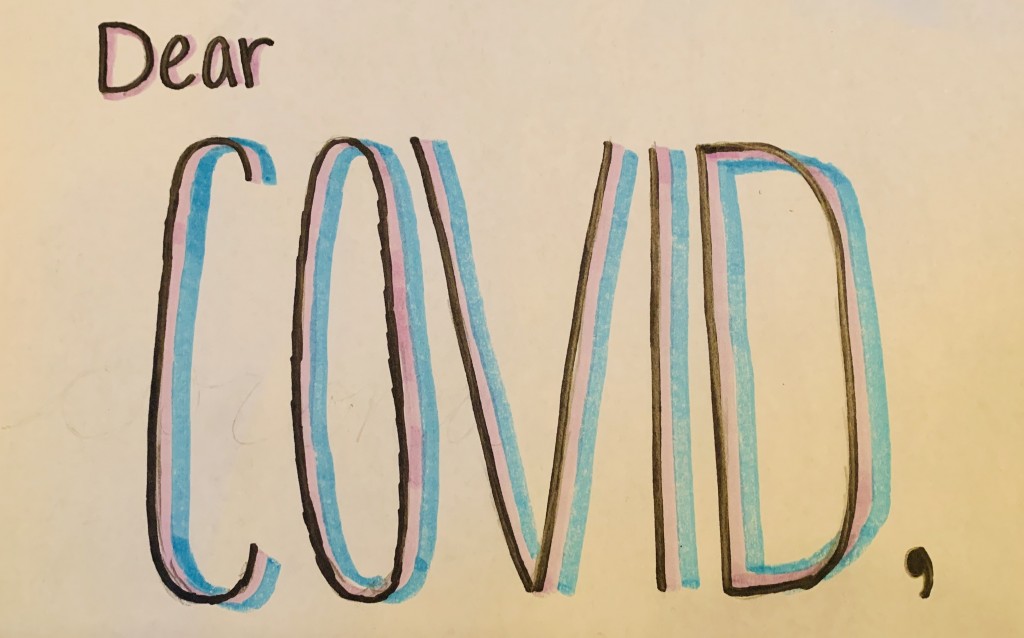 Dear
COVID,